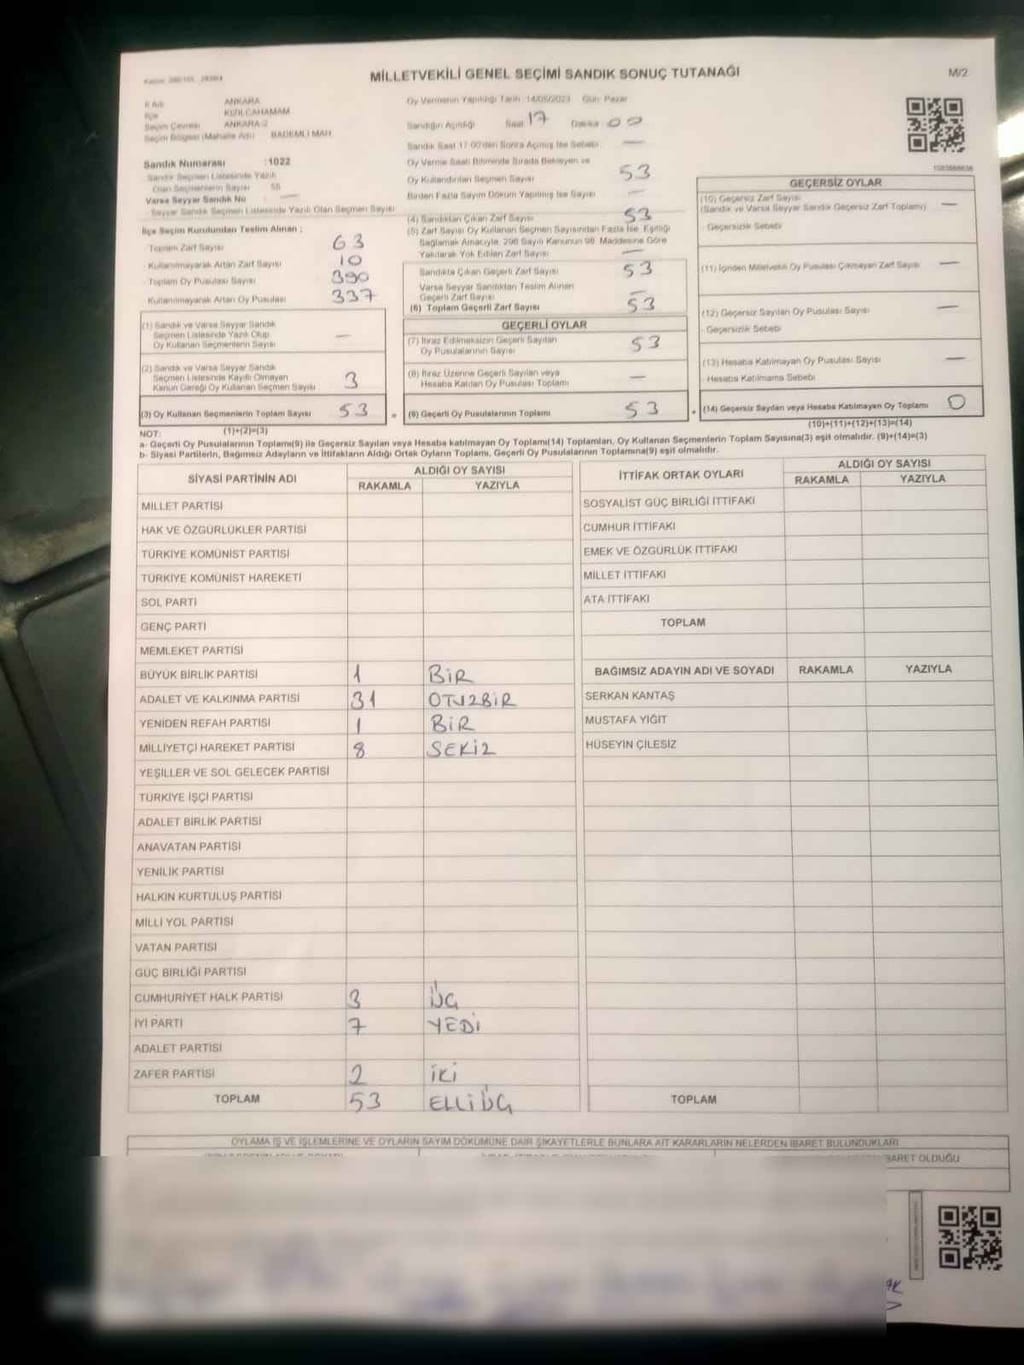 MİLLETVEKİLİ GENEL SEÇİMİ SANDIK SONUÇ TUTANAĞI
M/2
İl Adı ANKARA
İlçe KIZILCAHAMAM
Seçim Çevresi ANKARA-2
Seçim Bölgesi (Mahalle Adı) BADEMLİ MAH.
Sandık Numarası :1022
Sandık Seçmen Listesinde Yazılı
Olan Seçmenlerin Sayısı 55
Varsa Seyyar Sandık No —
Seyyar Sandık Seçmen Listesinde Yazılı Olan Seçmen Sayısı
İlçe Seçim Kurulundan Teslim Alınan ;
Toplam Zarf Sayısı 63
Kullanılmayarak Artan Zarf Sayısı 10
Toplam Oy Pusulası Sayısı 390
Kullanılmayarak Artan Oy Pusulası 337
(1) Sandık ve Varsa Seyyar Sandık
Seçmen Listesinde Yazılı Olup
Oy Kullanan Seçmenlerin Sayısı —
(2) Sandık ve Varsa Seyyar Sandık
Seçmen Listesinde Kayıtlı Olmayan
Kanun Gereği Oy Kullanan Seçmen Sayısı 3
(3) Oy Kullanan Seçmenlerin Toplam Sayısı 53
Oy Vermenin Yapıldığı Tarih :14/05/2023 Gün: Pazar
Sandığın Açıldığı Saat 17 Dakika 00
Sandık Saat 17:00'den Sonra Açılmış İse Sebebi —
Oy Verme Saati Bitiminde Sırada Bekleyen ve
Oy Kullandırılan Seçmen Sayısı 53
Birden Fazla Sayım Döküm Yapılmış İse Sayısı —
(4) Sandıktan Çıkan Zarf Sayısı 53
(5) Zarf Sayısı Oy Kullanan Seçmen Sayısından Fazla İse, Eşitliği
Sağlamak Amacıyla, 298 Sayılı Kanunun 98. Maddesine Göre
Yakılarak Yok Edilen Zarf Sayısı —
Sandıkta Çıkan Geçerli Zarf Sayısı 53
Varsa Seyyar Sandıktan Teslim Alınan
Geçerli Zarf Sayısı —
(6) Toplam Geçerli Zarf Sayısı 53
GEÇERLİ OYLAR
(7) İtiraz Edilmeksizin Geçerli Sayılan
Oy Pusulalarının Sayısı 53
(8) İtiraz Üzerine Geçerli Sayılan veya
Hesaba Katılan Oy Pusulası Toplamı —
(9) Geçerli Oy Pusulalarının Toplamı 53
GEÇERSİZ OYLAR
(10) Geçersiz Zarf Sayısı
(Sandık ve Varsa Seyyar Sandık Geçersiz Zarf Toplamı) —
Geçersizlik Sebebi
(11) İçinden Milletvekili Oy Pusulası Çıkmayan Zarf Sayısı —
(12) Geçersiz Sayılan Oy Pusulası Sayısı —
Geçersizlik Sebebi
(13) Hesaba Katılmayan Oy Pusulası Sayısı —
Hesaba Katılmama Sebebi
(14) Geçersiz Sayılan veya Hesaba Katılmayan Oy Toplamı 0
NOT: (1)+(2)=(3)
(10)+(11)+(12)+(13)=(14)
a- Geçerli Oy Pusulalarının Toplamı(9) ile Geçersiz Sayılan veya Hesaba katılmayan Oy Toplamı(14) Toplamları, Oy Kullanan Seçmenlerin Toplam Sayısına(3) eşit olmalıdır. (9)+(14)=(3)
b- Siyasi Partilerin, Bağımsız Adayların ve İttifakların Aldığı Ortak Oyların Toplamı, Geçerli Oy Pusulalarının Toplamına(9) eşit olmalıdır.
SİYASİ PARTİNİN ADI ALDIĞI OY SAYISI
RAKAMLA YAZIYLA
MİLLET PARTİSİ
HAK VE ÖZGÜRLÜKLER PARTİSİ
TÜRKİYE KOMÜNİST PARTİSİ
TÜRKİYE KOMÜNİST HAREKETİ
SOL PARTİ
GENÇ PARTİ
MEMLEKET PARTİSİ
BÜYÜK BİRLİK PARTİSİ 1 BİR
ADALET VE KALKINMA PARTİSİ 31 OTUZBİR
YENİDEN REFAH PARTİSİ 1 BİR
MİLLİYETÇİ HAREKET PARTİSİ 8 SEKİZ
YEŞİLLER VE SOL GELECEK PARTİSİ
TÜRKİYE İŞÇİ PARTİSİ
ADALET BİRLİK PARTİSİ
ANAVATAN PARTİSİ
YENİLİK PARTİSİ
HALKIN KURTULUŞ PARTİSİ
MİLLİ YOL PARTİSİ
VATAN PARTİSİ
GÜÇ BİRLİĞİ PARTİSİ
CUMHURİYET HALK PARTİSİ 3 ÜÇ
İYİ PARTİ 7 YEDİ
ADALET PARTİSİ
ZAFER PARTİSİ 2 İKİ
TOPLAM 53 ELLİÜÇ
İTTİFAK ORTAK OYLARI ALDIĞI OY SAYISI
RAKAMLA YAZIYLA
SOSYALİST GÜÇ BİRLİĞİ İTTİFAKI
CUMHUR İTTİFAKI
EMEK VE ÖZGÜRLÜK İTTİFAKI
MİLLET İTTİFAKI
ATA İTTİFAKI
TOPLAM
BAĞIMSIZ ADAYIN ADI VE SOYADI RAKAMLA YAZIYLA
SERKAN KANTAŞ
MUSTAFA YİĞİT
HÜSEYİN ÇİLESİZ
TOPLAM
OYLAMA İŞ VE İŞLEMLERİNE VE OYLARIN SAYIM DÖKÜMÜNE DAİR ŞİKAYETLERLE BUNLARA AİT KARARLARIN NELERDEN İBARET BULUNDUKLARI
BARET OLDUĞU